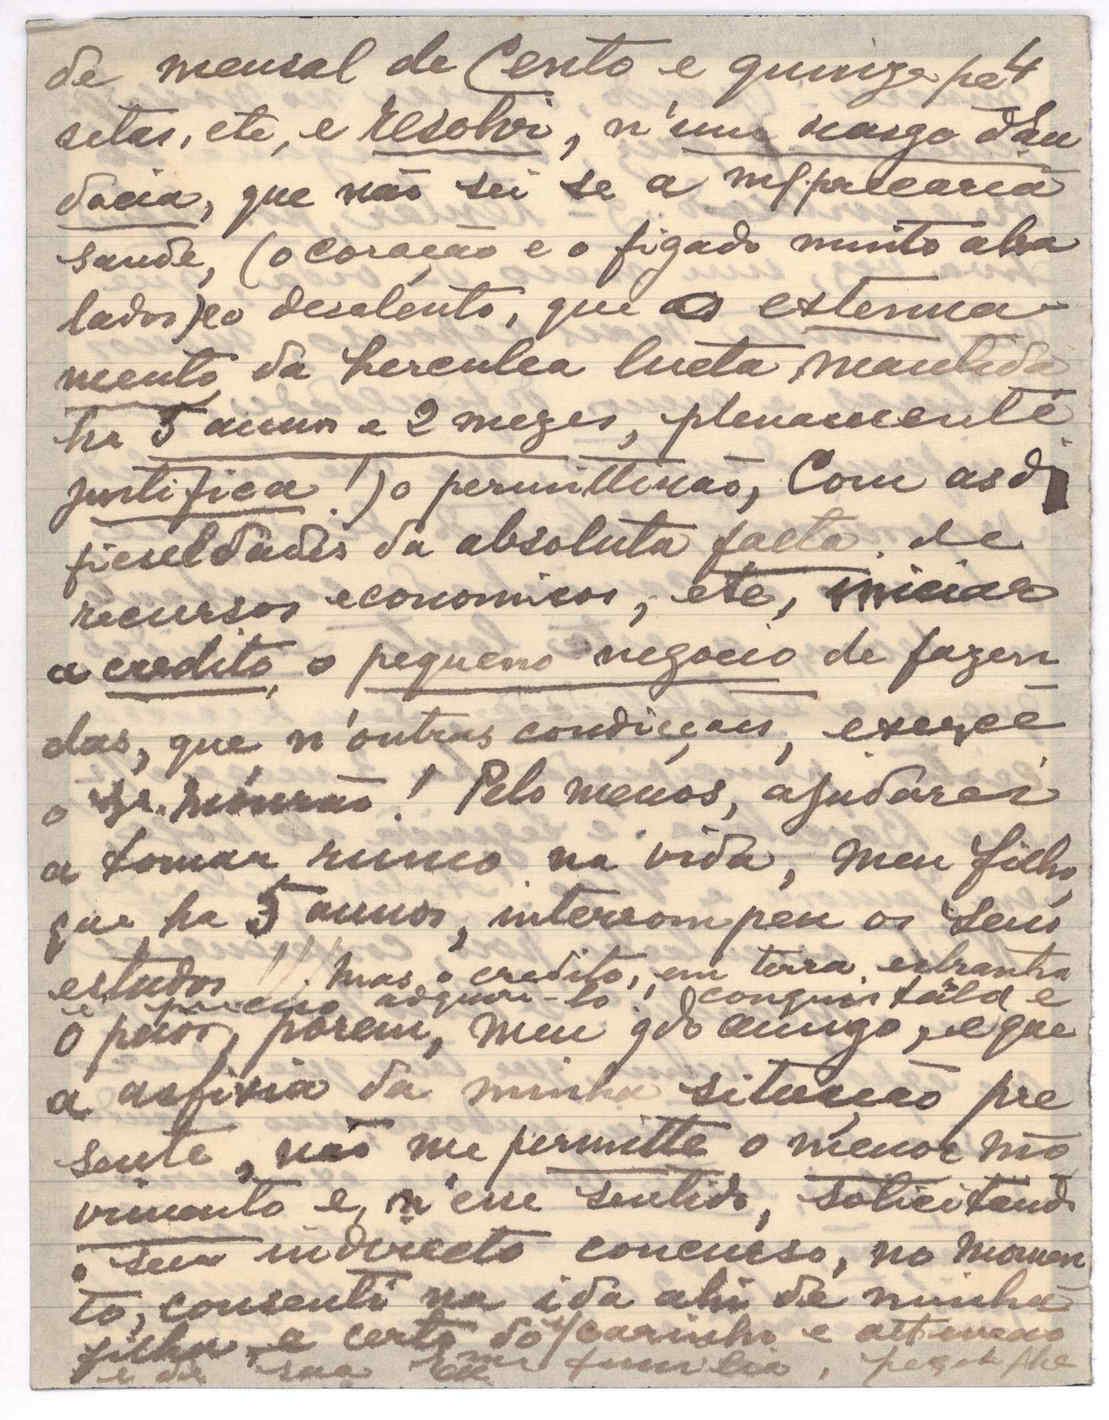 4
de mensal de Cento e quinze pe
setas, etc, e resolvi, n'um rasgo d'au
dacia, que não sei se a m/ precaria
saude, (o coração e o figado muito aba
lados) e o desalento, que o extenua-
mento da herculea lucta mantida
ha 5 annos e 2 mezes, plenamente
justifica!) o permittirão, Com as di
ficuldades da absoluta falta de
recursos economicos, etc, iniciar
a credito, o pequeno negocio de fazen
das, que, n'outras condiçães, exerce
o Sr. Mourão! Pelo menos, ajudarei
a tomar rumo na vida, meu filho,
que ha 5 annos, interrompeu os seus
estudos!!! Mas o credito, em terra extranha
é preciso adquiri-lo, conquistal-o e
o peor, porem, meu qdo amigo, e que
a asfixia da minha situação pre
sente, não me permitte o menor mo
vimento e, n'esse sentido, solicitando
o seu indirecto concurso, no momen
to, consenti na ida ahi de minha
filha, e certo do carinho e attenção
e de sua Exma familia,